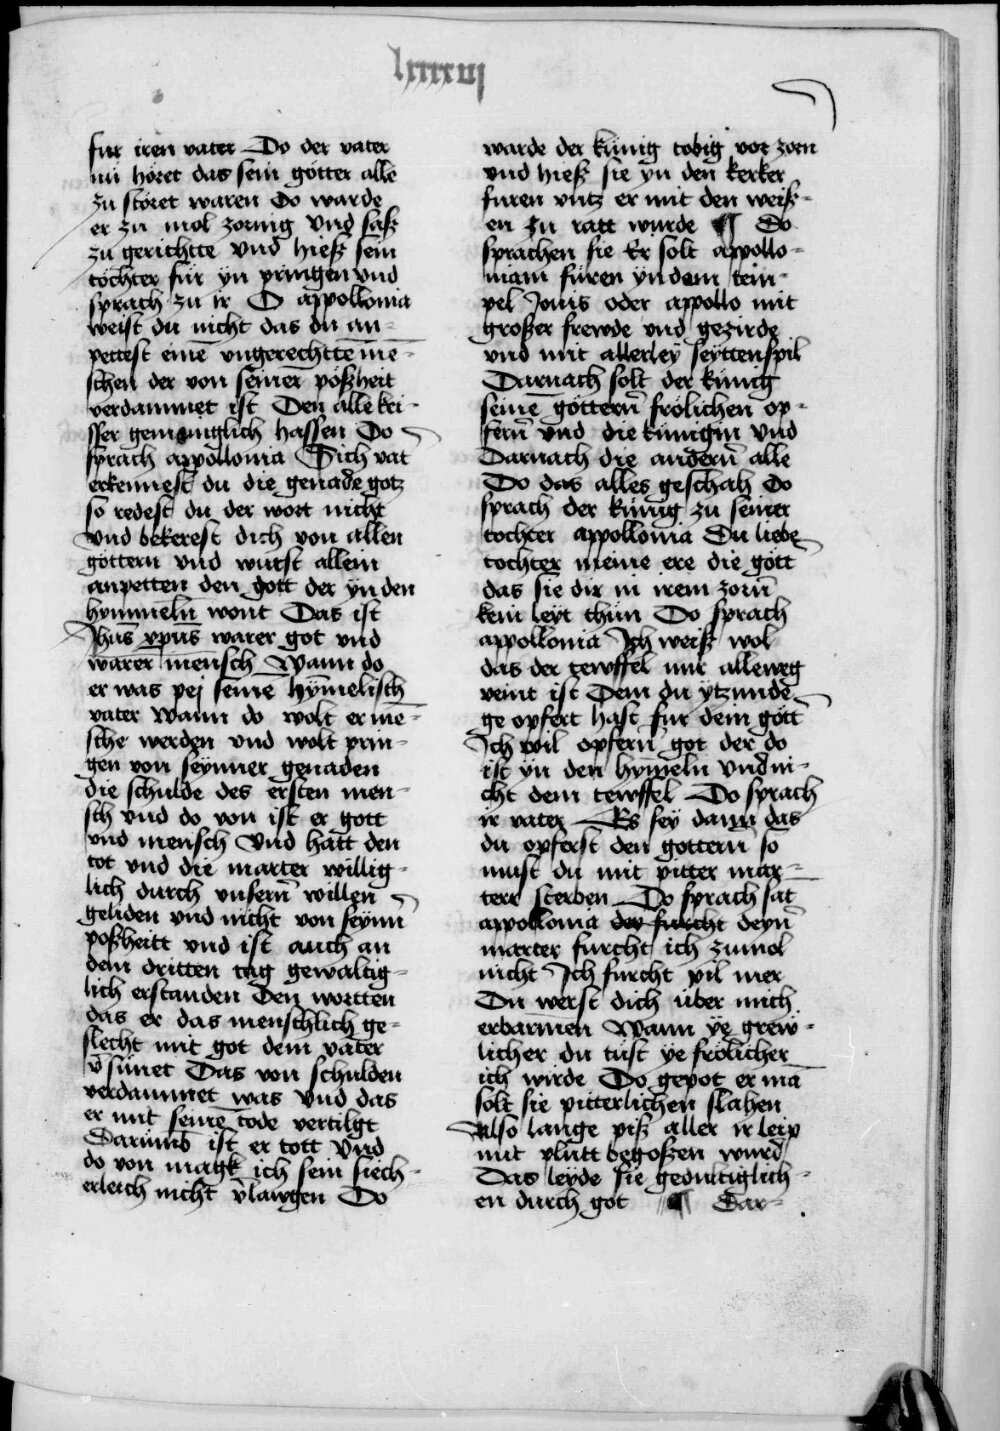 lxxxxiij
fur iren vater Do der vater
nu höret das sein götter alle
zu störet waren Do warde
er zu mol zornig Und saß
zu gerichtte Und hieß sein
töchter für yn pringen Und
sprach zu ir O appollonia
weist du nicht das du an-
pettest einē ungerechtte mē-
schen der von seiner poßheit
verdammet ist Den alle kei-
sser gemainglich hassen Do
sprach appollonia Sich vat
erkennest du die genade gotz
so redest du der wort nicht
Und bekerest dich von allen
göttern und wurst allein
anpetten den gott der yn den
hymmeln̄ wont Das ist
Jhūs xpūs warer got und
warer mensch Wann do
er was pej seinē hȳmelisch
vater Wann do wolt er mē-
sche werden und wolt prin-
gen von seynner genaden
die schulde des ersten men-
sch und do von ist er gott
und mensch Und hatt den
tot und die marter willig-
lich durch unsern̄ willen
geliden und nicht von seynn
poßheitt und ist auch an
dem dritten tag gewaltig-
lich erstanden Den wortten
das er das menschlich ge-
slecht mit got dem vater
v̄sünet Das von schulden
verdammet was Und das
er mit seinē tode vertilgt
Darumb ist er tott Und
do von magk ich sein siech-
erleich nicht v̄lawgen Do
warde der künig tobig vor zorn
und hieß sie yn den kerker
furen untz er mit den weiß-
en zu ratt wurde ¶ Do
sprachen sie Er solt appollo-
niam füren yn dem tem-
pel Jovis oder appollo mit
großer frewde und gezirde
und mit allerley seyttenspil
Darnach solt der künig
seinē göttern̄ frölichen op-
fern̄ Und die künigin Und
Darnach die andern̄ alle
Do das alles geschah Do
sprach der künig zu seiner
tochter appollonia Du liebe
tochter meine ere die gött
das sie dir in irem zorn̄
kein leyt thün Do sprach
appollonia Ich weiß wol
das der tewffel mir alleweg
veint ist Dem du ytzunde
ge opfert hast fur dein gött
Ich wil opfern̄ got der do
ist yn den hym̄eln Und ni-
cht dem tewffel Do sprach
ir vater Es sey dann das
du opferst den gottern̄ so
must du mit pitter mar-
terr sterben Do sprach sāt
appollonia der furcht deyn̄
marter furcht ich zumol
nicht Ich furcht vil mer
Du werst dich über mich
erbarmen Wann ye grew-
licher du tüst ye frölicher
ich wirde Do gepot er mā
solt sie pitterlichen slahen
Also lange piß aller ir leip
mit plütt begoßen wurd
Das leyde sie gedultiglich-
en durch got ¶ Dar-